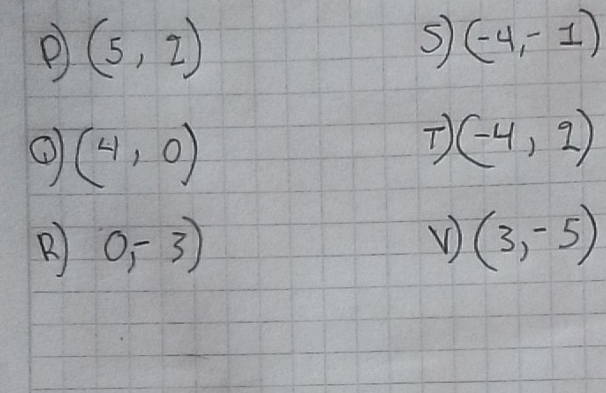 P) (5, 2) S) (-4,-1)
Q) (4, 0) T) (-4, 2)
R) 0,-3) V) (3,-5)